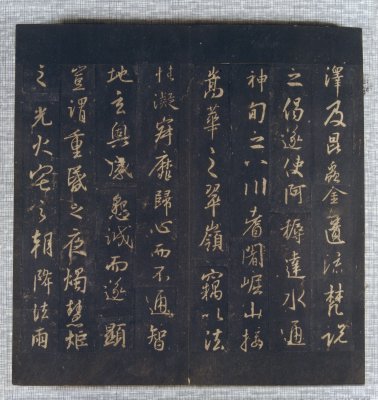 澤及昆蟲金匱流梵說
之偈遂使阿耨達水通
神甸之八川耆闍崛山接
嵩華之翠嶺竊以法
性凝寂靡歸心而不通智
地玄奧感懇誠而遂顯
豈謂重昏之夜燭慧炬
之光火宅之朝降法雨